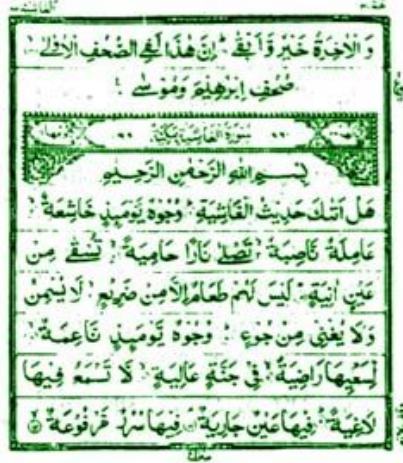 الغاشية
وَالْآخِرَةُ خَيْرٌ وَّأَبْقٰى إِنَّ هٰذَا لَفِي الصُّحُفِ الْأُوْلٰى
صُحُفِ إِبْرٰهِيْمَ وَمُوْسٰى
سورة الغاشية مكية
بِسْمِ اللهِ الرَّحْمٰنِ الرَّحِيْمِ
هَلْ أَتٰىكَ حَدِيْثُ الْغَاشِيَةِ وُجُوْهٌ يَّوْمَئِذٍ خَاشِعَةٌ
عَامِلَةٌ نَّاصِبَةٌ تَصْلٰى نَارًا حَامِيَةً تُسْقٰى مِنْ
عَيْنٍ اٰنِيَةٍ لَيْسَ لَهُمْ طَعَامٌ إِلَّا مِنْ ضَرِيْعٍ لَّا يُسْمِنُ
وَلَا يُغْنِيْ مِنْ جُوْعٍ وُجُوْهٌ يَّوْمَئِذٍ نَّاعِمَةٌ
لِّسَعْيِهَا رَاضِيَةٌ فِيْ جَنَّةٍ عَالِيَةٍ لَّا تَسْمَعُ فِيْهَا
لَاغِيَةً فِيْهَا عَيْنٌ جَارِيَةٌ فِيْهَا سُرُرٌ مَّرْفُوْعَةٌ